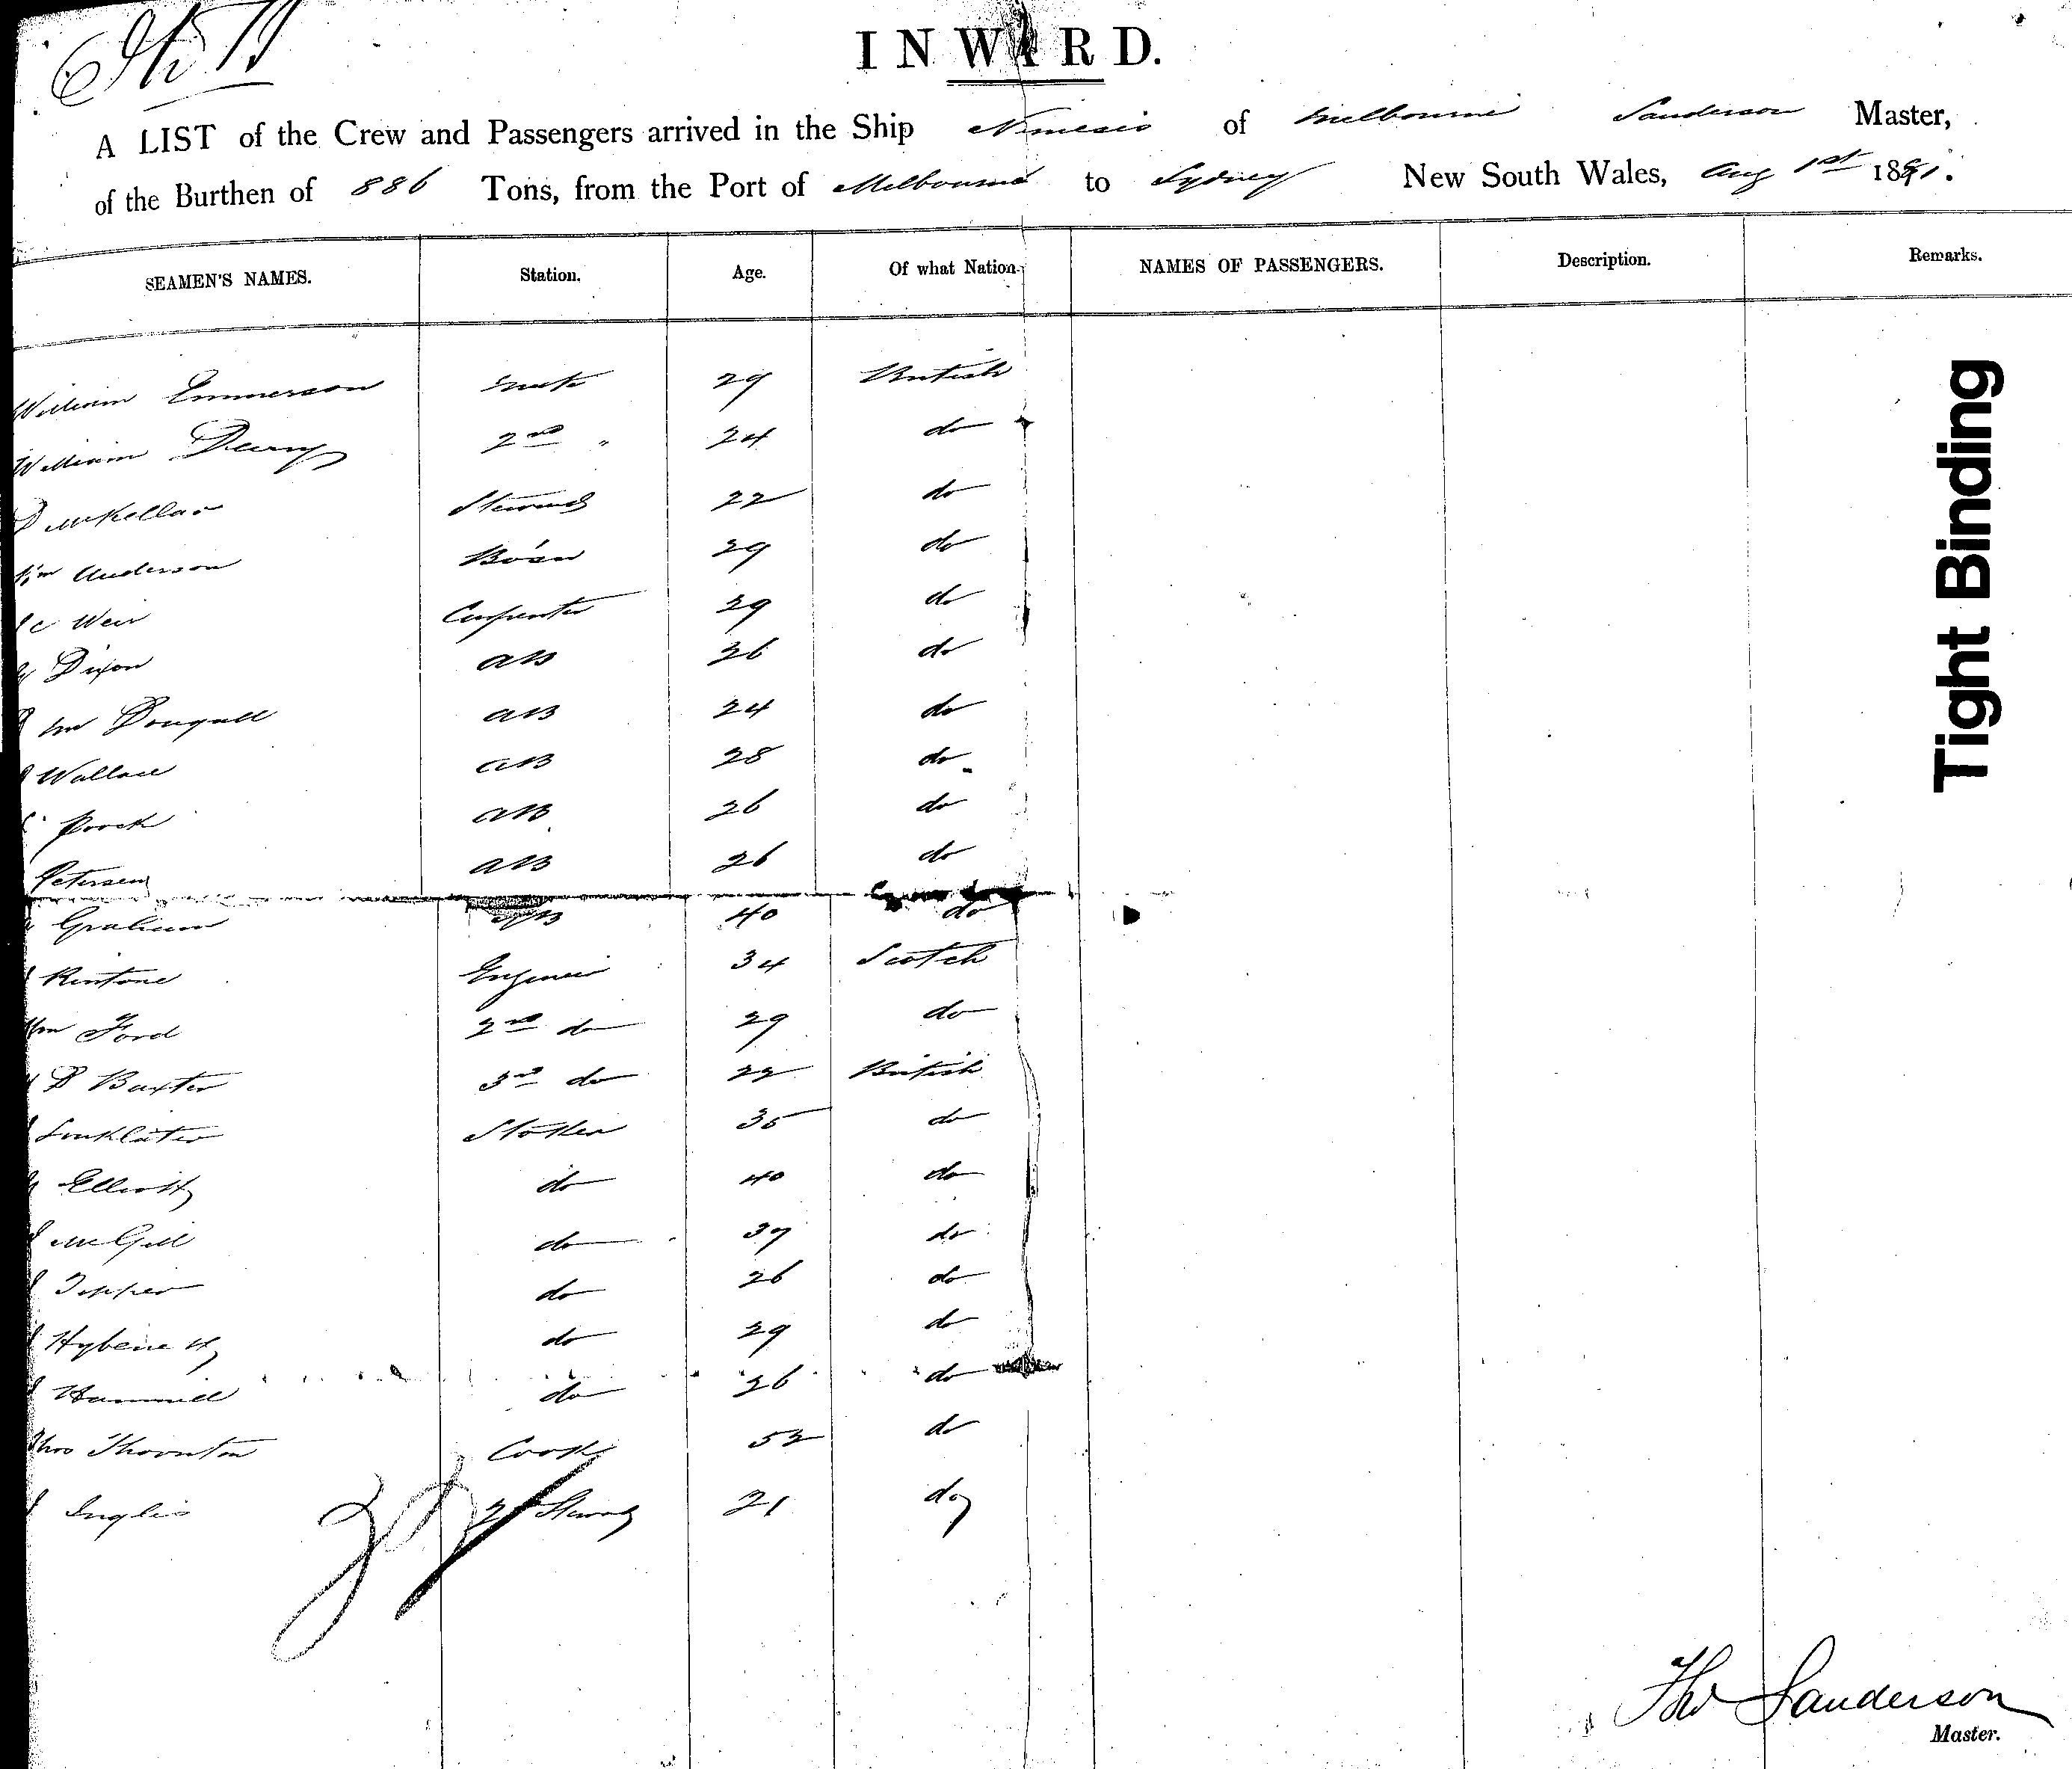 INWARD.
A LIST of the Crew and Passengers arrived in the Ship Nemesis of Melbourne Sanderson Master,
of the Burthen of 886 Tons, from the Port of Melbourne to Sydney New South Wales, Aug 1st 1891.
SEAMEN'S NAMES. Station. Age. Of what Nation. NAMES OF PASSENGERS. Description. Remarks.
William Emmerson Mate 29 British
William 2nd " 24 do
D McKellar Steward 22 do
Wm Anderson Bosn 29 do
Weir Carpenter 29 do
Dixon AB 26 do
Mc Dougall AB 24 do
Wallace AB 28 do
AB 26 do
Petersen AB 26 do
Graham AB 40 do
Rintone Engineer 34 Scotch
Wm Ford 2nd do 29 do
D Baxter 3rd do 22 British
Sinklater Stoker 35 do
Elliott do 40 do
McGill do 37 do
do 26 do
do 29 do
Hammill do 26 do
Thos Thornton Cook 52 do
Inglis 2nd Steward 21 do
Tight Binding
Tho Sanderson
Master.